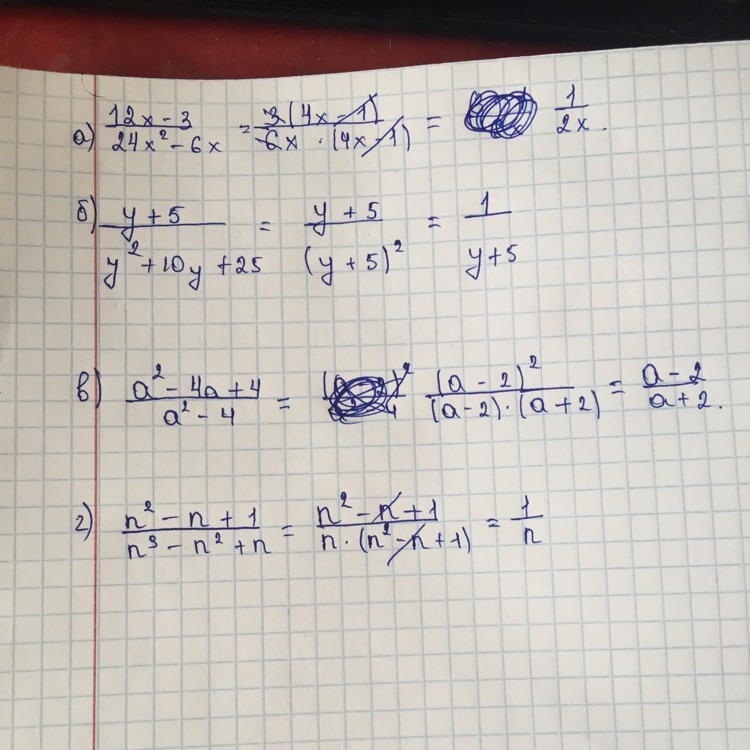 а) (12x - 3)/(24x² - 6x) = 3(4x - 1)/(6x · (4x - 1)) = 1/(2x).
б) (y + 5)/(y² + 10y + 25) = (y + 5)/(y + 5)² = 1/(y + 5)
в) (a² - 4a + 4)/(a² - 4) = (a - 2)²/((a - 2) · (a + 2)) = (a - 2)/(a + 2).
г) (n² - n + 1)/(n³ - n² + n) = (n² - n + 1)/(n · (n² - n + 1)) = 1/n